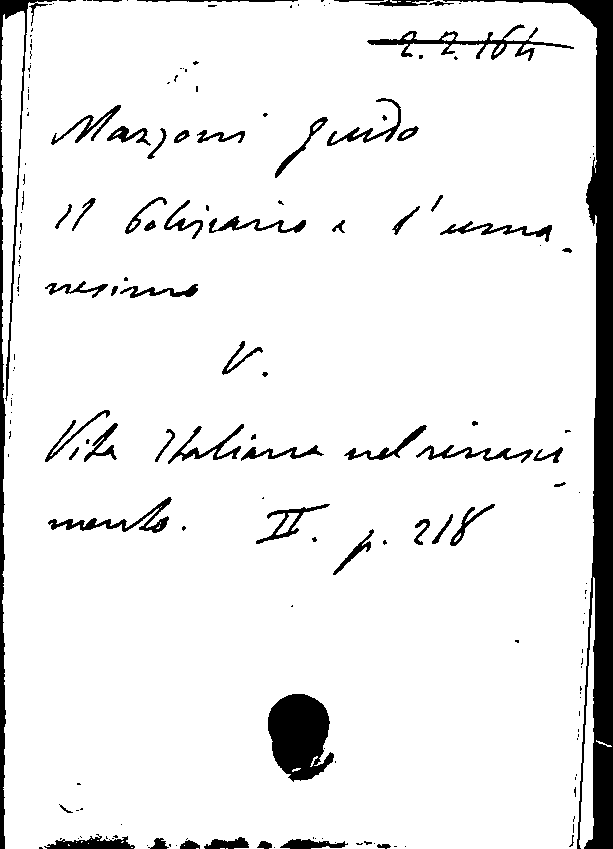 2.2.164
Mazzoni Guido
Il Poliziano e l'uma-
nesimo
V.
Vita Italiana nel rinasci-
mento. II. p. 218